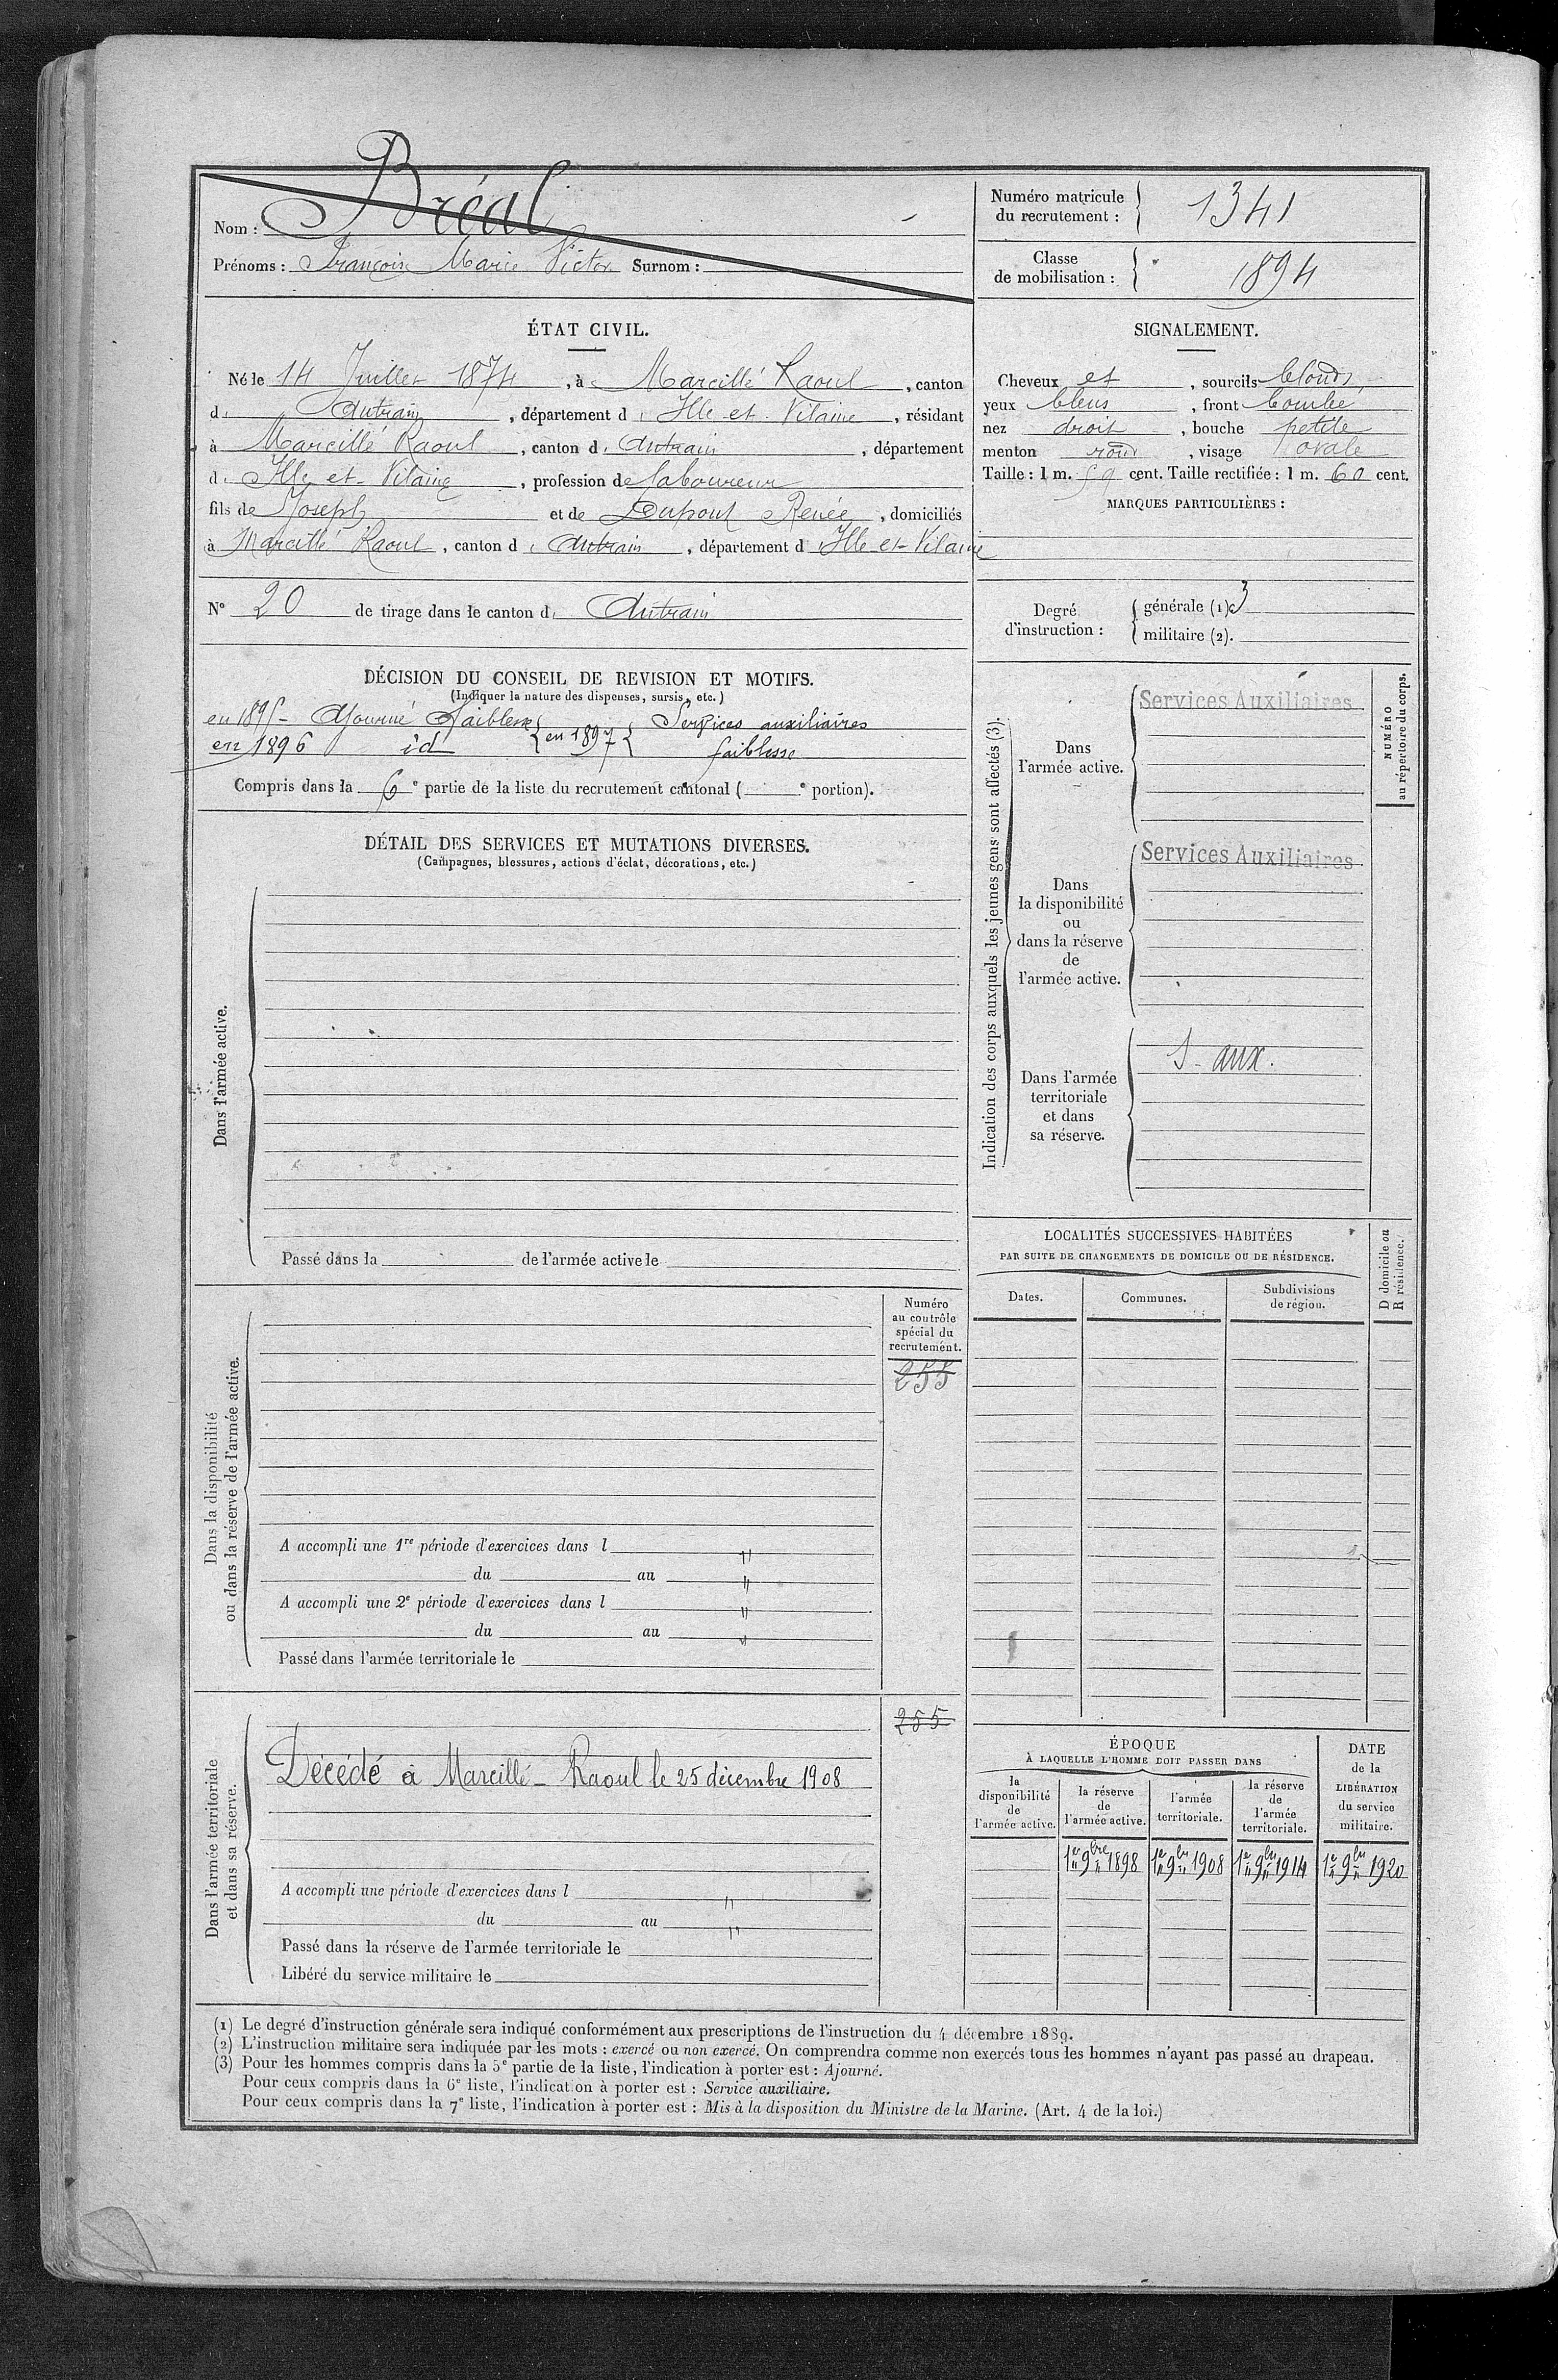 Nom : Bréal
Prénoms : François Marie Victor Surnom :
Numéro matricule du recrutement : 1341
Classe de mobilisation : 1894
ÉTAT CIVIL.
Né le 14 Juillet 1874, à Marcillé Raoul, canton
d' Antrain, département d' Ille-et-Vilaine, résidant
à Marcillé Raoul, canton d' Antrain, département
d' Ille et Vilaine, profession de laboureur
fils de Joseph et de Dupont Renée, domiciliés
à Marcillé Raoul, canton d' Antrain, département d' Ille-et-Vilaine
N° 20 de tirage dans le canton d' Antrain
SIGNALEMENT.
Cheveux et, sourcils blonds,
yeux bleus, front bombé
nez droit, bouche petite
menton rond, visage ovale
Taille : 1 m. 59 cent. Taille rectifiée : 1 m. 60 cent.
MARQUES PARTICULIÈRES :
Degré d'instruction :
générale (1) 3
militaire (2).
DÉCISION DU CONSEIL DE REVISION ET MOTIFS.
(Indiquer la nature des dispenses, sursis, etc.)
en 1895 - Ajourné Faiblesse { en 1897 { Services auxiliaires
en 1896 id faiblesse
Compris dans la 6e partie de la liste du recrutement cantonal ( e portion).
DÉTAIL DES SERVICES ET MUTATIONS DIVERSES.
(Campagnes, blessures, actions d'éclat, décorations, etc.)
Dans l'armée active.
Passé dans la de l'armée active le
Indication des corps auxquels les jeunes gens sont affectés (3).
NUMÉRO
au répertoire du corps.
Dans
l'armée active.
Services Auxiliaires
Dans
la disponibilité
ou
dans la réserve
de
l'armée active.
Services Auxiliaires
Dans l'armée
territoriale
et dans
sa réserve.
S. aux.
LOCALITÉS SUCCESSIVES HABITÉES
PAR SUITE DE CHANGEMENTS DE DOMICILE OU DE RÉSIDENCE.
Dates.
Communes.
Subdivisions
de région.
D domicile ou
R résidence.
Dans la disponibilité
ou dans la réserve de l'armée active.
Numéro
au contrôle
spécial du
recrutement.
255
A accompli une 1re période d'exercices dans l "
du au "
A accompli une 2e période d'exercices dans l "
du au "
Passé dans l'armée territoriale le
Dans l'armée territoriale
et dans sa réserve.
255
Décédé à Marcillé-Raoul le 25 décembre 1908
A accompli une période d'exercices dans l "
du au "
Passé dans la réserve de l'armée territoriale le
Libéré du service militaire le
ÉPOQUE
À LAQUELLE L'HOMME DOIT PASSER DANS
la
disponibilité
de
l'armée active.
la réserve
de
l'armée active.
l'armée
territoriale.
la réserve
de
l'armée
territoriale.
DATE
de la
LIBÉRATION
du service
militaire.
1er 9bre 1898
1er 9bre 1908
1er 9bre 1914
1er 9bre 1920
(1) Le degré d'instruction générale sera indiqué conformément aux prescriptions de l'instruction du 4 décembre 1889.
(2) L'instruction militaire sera indiquée par les mots : exercé ou non exercé. On comprendra comme non exercés tous les hommes n'ayant pas passé au drapeau.
(3) Pour les hommes compris dans la 5e partie de la liste, l'indication à porter est : Ajourné.
Pour ceux compris dans la 6e liste, l'indication à porter est : Service auxiliaire.
Pour ceux compris dans la 7e liste, l'indication à porter est : Mis à la disposition du Ministre de la Marine. (Art. 4 de la loi.)